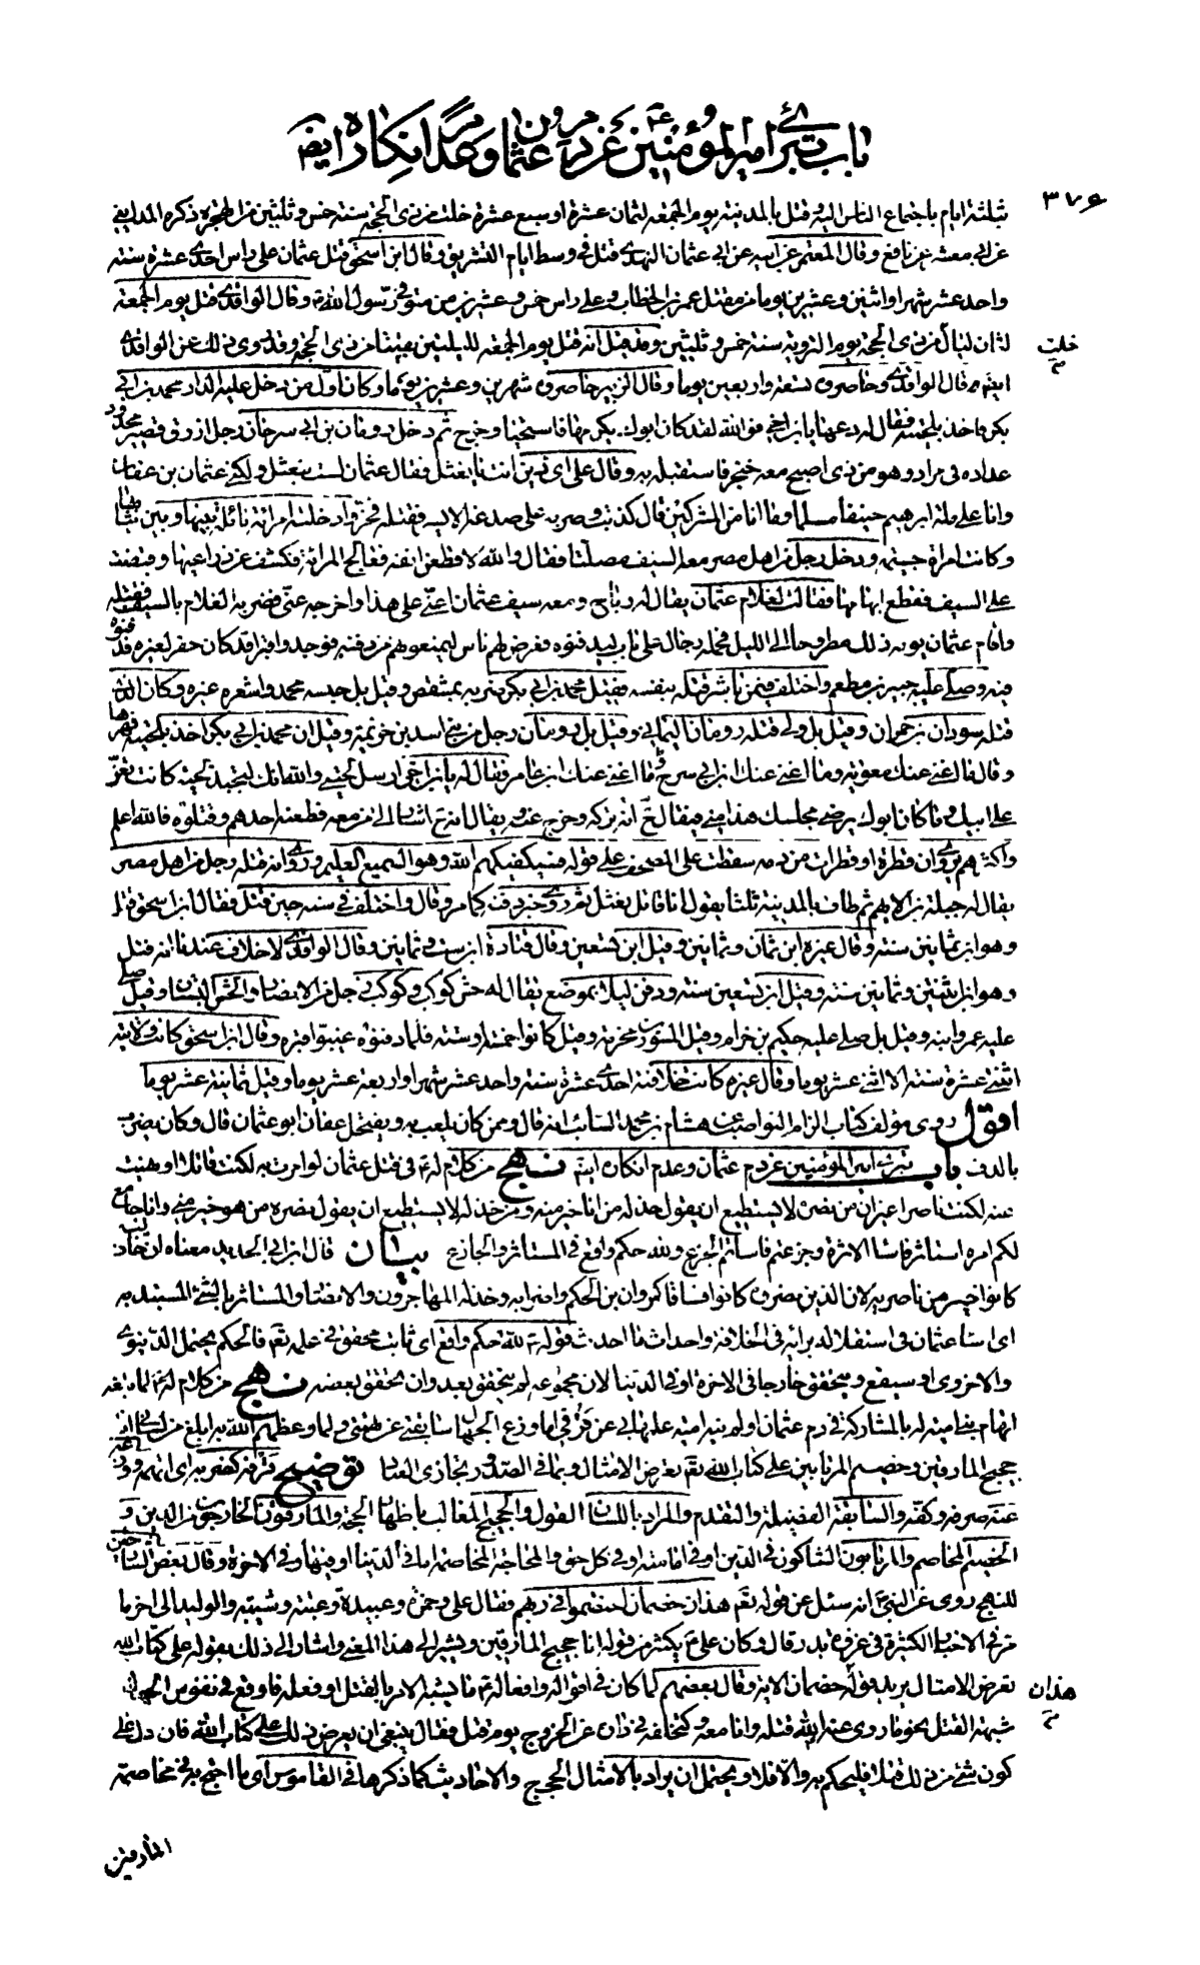 باب تبرئ امير المؤمنين ع عن دم عثمان وعدم انكاره ايضا
٣٧٦
ثلثة ايام باجتماع الناس اليه وقتل بالمدينة يوم الجمعة لثمان عشرة او سبع عشرة خلت من ذى الحجة سنة خمس وثلثين من الهجرة ذكره المداينى
عن ابى معشر عن نافع وقال المعتمر عن ابيه عن ابى عثمان النهدى قتل فى وسط ايام التشريق وقال ابن اسحق قتل عثمان على راس احدى عشرة سنة
واحد عشر شهرا واثنين وعشرين يوما من مقتل عمر بن الخطاب وعلى راس خمس وعشرين من متوفى رسول الله ص وقال الواقدى قتل يوم الجمعة
لثمان ليال من ذى الحجة يوم التروية سنة خمس وثلثين وقد قيل انه قتل يوم الجمعة لليلتين بقيتا من ذى الحجة وقد روى ذلك عن الواقدى
خلت
ايضا قال الواقدى وحاصروه تسعة واربعين يوما وقال الزبير حاصروه شهرين وعشرين يوما وكان اول من دخل عليه الدار محمد بن ابى
بكر فاخذ بلحيته فقال له دعها يابن اخى فو الله لقد كان ابوك يكرمها فاستحيى وخرج ثم دخل رومان بن ابى سرحان رجل ازرق قصير محدود
عداده فى مراد وهو من ذى اصبح معه خنجر فاستقبله به وقال على اى دين انت يا نعثل فقال عثمان لست بنعثل ولكنى عثمان بن عفان
وانا على ملة ابرهيم حنيفا مسلما وما انا من المشركين قال كذبت وضربه على صدغه الايسر فقتله فخر وادخلته امراته نائلة بينها وبين ثيابها
وكانت امراة جسيمة ودخل رجل من اهل مصر معه السيف مصلتا فقال والله لاقطعن انفه فعالج المراة فكشف عن ذراعيها وقبضت
على السيف فقطع ابهامها فقالت لغلام عثمان يقال له رباح ومعه سيف عثمان اعنى على هذا واخرجه عنى فضربه الغلام بالسيف فقتله
واقام عثمان يومه ذلك مطروحا الى الليل فحمله رجال على باب ليدفنوه فعرض لهم ناس ليمنعوهم من دفنه فوجدوا قبرا قد كان حفر لغيره فدفنوه
فيه وصلى عليه جبير بن مطعم واختلف فيمن باشر قتله بنفسه فقيل محمد بن ابى بكر ضربه بمشقص وقيل بل حبسه محمد واشعره غيره وكان الذى
قتله سودان بن حمران وقيل بل ولى قتله رومان اليمانى وقيل بل رومان رجل من بنى اسد بن خزيمة وقيل ان محمد بن ابى بكر اخذ بلحيته فهزها
وقال ما اغنى عنك معوية وما اغنى عنك ابن ابى سرح وما اغنى عنك ابن عامر فقال له يابن اخى ارسل لحيتى والله انك لتجبذ لحية كانت تعز
على ابيك وما كان ابوك يرضى مجلسك هذا منى فيقال انه تركه وخرج عنه ويقال انه ح اشار الى من معه فطعنه احدهم وقتلوه فالله اعلم
واكثرهم يروى ان قطرة او قطرات من دمه سقطت على المصحف على قوله فسيكفيكهم الله وهو السميع العليم وروى انه قتله رجل من اهل مصر
يقال له جبلة بن الايهم ثم طاف بالمدينة ثلثا يقول انا قاتل نعثل ثم روى خبر دفنه كما مر وقال واختلف فى سنه حين قتل فقال ابن اسحق قتل
وهو ابن ثمانين سنة وقال غيره ابن ثمان وثمانين وقيل ابن تسعين وقال قتادة ابن ست وثمانين وقال الواقدى لا خلاف عندنا انه قتل
وهو ابن اثنتين وثمانين سنة وقيل ابن تسعين سنة ودفن ليلا بموضع يقال له حش كوكب وكوكب رجل من الانصار والحش البستان وقيل صلى
عليه عمرو ابنه وقيل بل صلى عليه حكيم بن حزام وقيل المسور بن مخرمة وقيل كانوا خمسة او ستة فلما دفنوه غيبوا قبره وقال ابن اسحق كانت ولايته
اثنتى عشرة سنة الا اثنى عشر يوما وقال غيره كانت خلافته احدى عشرة سنة واحد عشر شهرا واربعة عشر يوما وقيل ثمانية عشر يوما
اقول روى مؤلف كتاب الزام النواصب عن هشام بن محمد السائب انه قال وممن كان يلعب به ويفتحل عفان ابو عثمان قال وكان يضرب
بالدف باب تبرئ امير المؤمنين عن دم عثمان وعدم انكاره ايضا نهج من كلام له ع فى قتل عثمان لو امرت به لكنت قاتلا او نهيت
عنه لكنت ناصرا غير ان من نصره لا يستطيع ان يقول خذله من انا خير منه ومن خذله لا يستطيع ان يقول نصره من هو خير منى وانا جامع
لكم امره استاثر فاساء الاثرة وجزعتم فاساتم الجزع ولله حكم واقع فى المستاثر والجازع بيان قال ابن ابى الحديد معناه ان خاذليه
كانوا خيرا من ناصريه لان الذين نصروه كانوا فساقا كمروان بن الحكم واضرابه وخذله المهاجرون والانصار والمستاثر بالشئ المستبد به
اى اساء عثمان فى استقلاله برايه فى الخلافة واحداث ما احدث قوله ع لله حكم واقع اى ثابت محقق فى علمه تعم فالحكم يحتمل الدنيوى
والاخروى او سيقع ويتحقق خارجا فى الاخرة او فى الدنيا لان مجموعه لم يتحقق بعد وان تحقق بعضه نهج من كلام له ع لما بلغه
اتهام بنى امية له بالمشاركة فى دم عثمان اولم ينه امية علمها بى عن قرفى اما وزع الجهال سابقتى عن تهمتى ولما وعظهم الله به ابلغ من لسانى انا
حجيج المارقين وخصيم المرتابين على كتاب الله تعم تعرض الامثال وبما فى الصدور تجازى العباد توضيح قرفه كضربه اى اتهمه ووزعه
عنه صرفه وكفه والسابقة الفضيلة والتقدم والمراد باللسان القول والحجيج المغالب باظهار الحجة والمارقون الخارجون من الدين و
الخصيم المخاصم والمرتابون الشاكون فى الدين او فى امامته او فى كل حق والمحاجة المخاصمة اما فى الدنيا او فيها وفى الاخرة وقال بعض الشارحين
للنهج روى عن النبى ص انه سئل عن قوله تعم هذان خصمان اختصموا فى ربهم فقال على وحمزة وعبيدة وعتبة وشيبة والوليد الى اخر ما
مر فى الاخبار الكثيرة فى غزوة بدر وقال وكان على ع يكثر من قوله انا حجيج المارقين ويشير الى هذا المعنى واشار الى ذلك بقوله على كتاب الله
تعرض الامثال يريد قوله خصمان الاية وقال بعضهم لما كان فى اقواله وافعاله ع ما يشبه الامر بالقتل او فعله فاوقع فى نفوس الجهال
هذان
شبهة القتل نحو ما روى عنه الله قتله وانا معه وكتخلفه فى داره عن الخروج يوم قتل فقال ينبغى ان يعرض ذلك على كتاب الله فان دل على
كون شئ من ذلك قتلا فليحكم به والا فلا ويحتمل ان يراد بالامثال الحجج والاحاديث كما ذكرها فى القاموس اى ما احتج به فى مخاصمة
المارقين